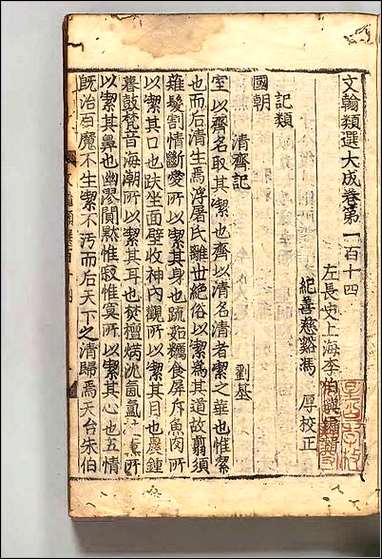 文翰類選大成卷第一百十四
左長史上海李伯璵
紀善慈谿馮厚校正
記類
國朝
清齋記 劉基
室以齋名取其潔也齋以清名清者潔之華也惟潔
也而后清生焉浮屠氏離世絕俗以潔為其道故翦須
薙髮割情斷愛所以潔其身也疏茹糲食屏斥魚肉所
以潔其口也趺坐面壁收神內觀所以潔其目也晨鐘
暮鼓梵音海潮所以潔其耳也焚檀爇沈氤氳所
以潔其鼻也幽閴黙惟寂惟寞所以潔其心也五情
既治百魔不生潔不汚而后天下之清歸焉天台朱伯